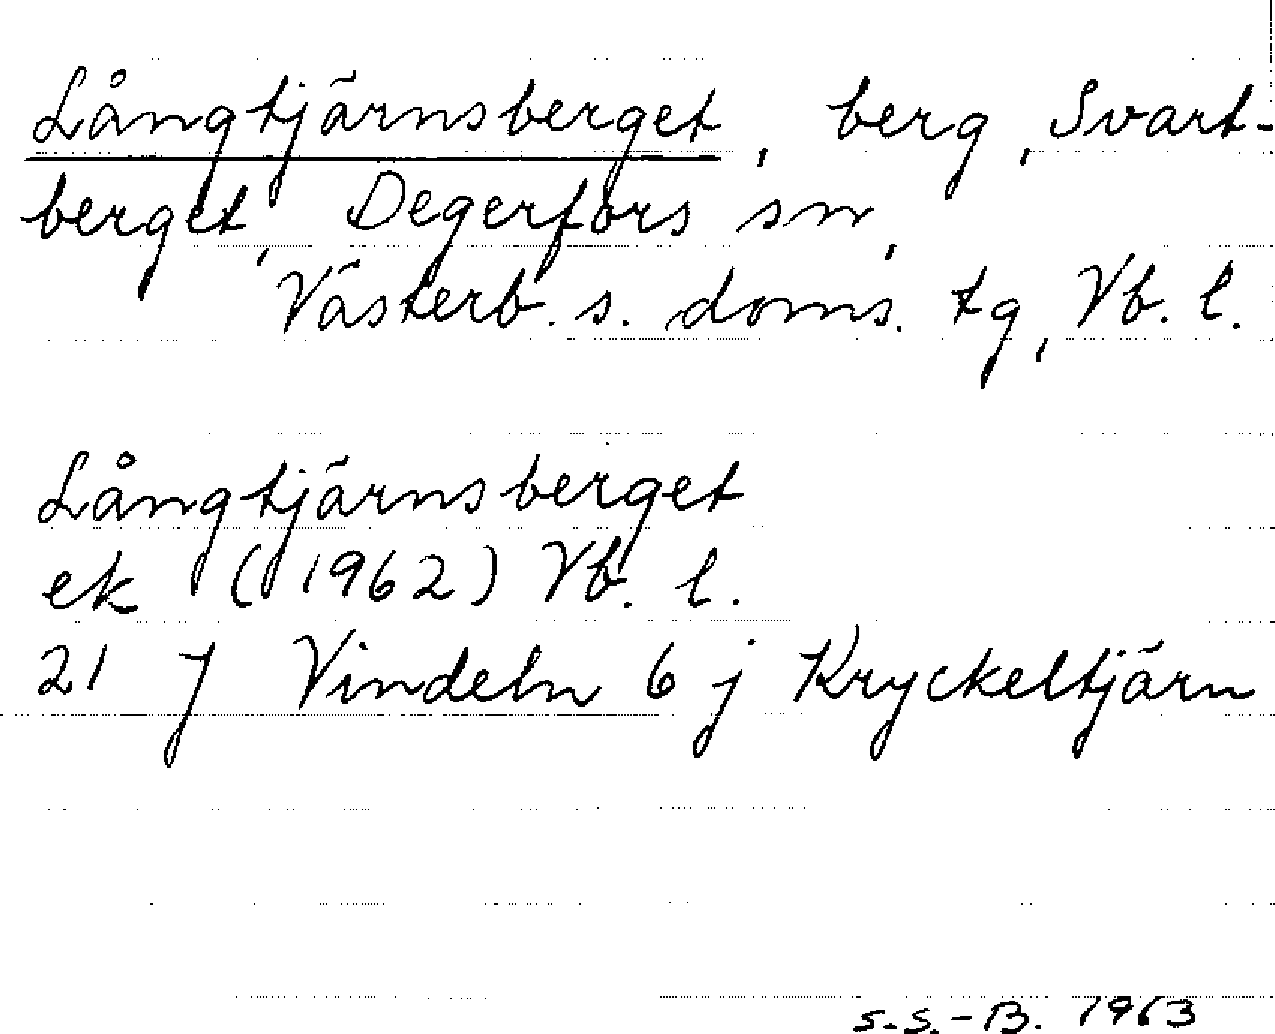 Långtjärnsberget, berg, Svart-
berget, Degerfors sn,
Västerb. s. doms. tg, Vb. l.
Långtjärnsberget
ek (1962) Vb. l.
21 J Vindeln 6 j Kryckeltjärn
S.S.-B. 1963